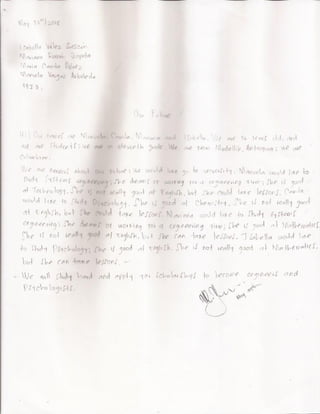 May 23rd/2018
Isabella Velez
Mariana
Maria Camila
Manuela Vargas Arboleda
Our Future
Hi! Our names are Manuela, Camila, Mariana and Isabella. We are 16 years old, and
we are students; we are in eleventh grade. We are from Medellin, Antioquia; we are
Colombians.
We are curious about our future; we would like go to university. Manuela would like to
Study Systems engineering; She dreams of working on a engineering firm; She is good
at Technology. She is not really good at English, but She could take lessons. Camila
would like to Study Psychology. She is good at Chemistry. She is not really good
at English, but She could take lessons. Mariana would like to Study Systems
engineering; She dreams of working on a engineering firm; She is good at Mathematics.
She is not really good at English, but She can take lessons. Isabella would like
to Study Psychology; She is good at English. She is not really good at Mathematics,
but She can take lessons.
We will study hard and apply for scholarships to become engineers and
Psychologists.